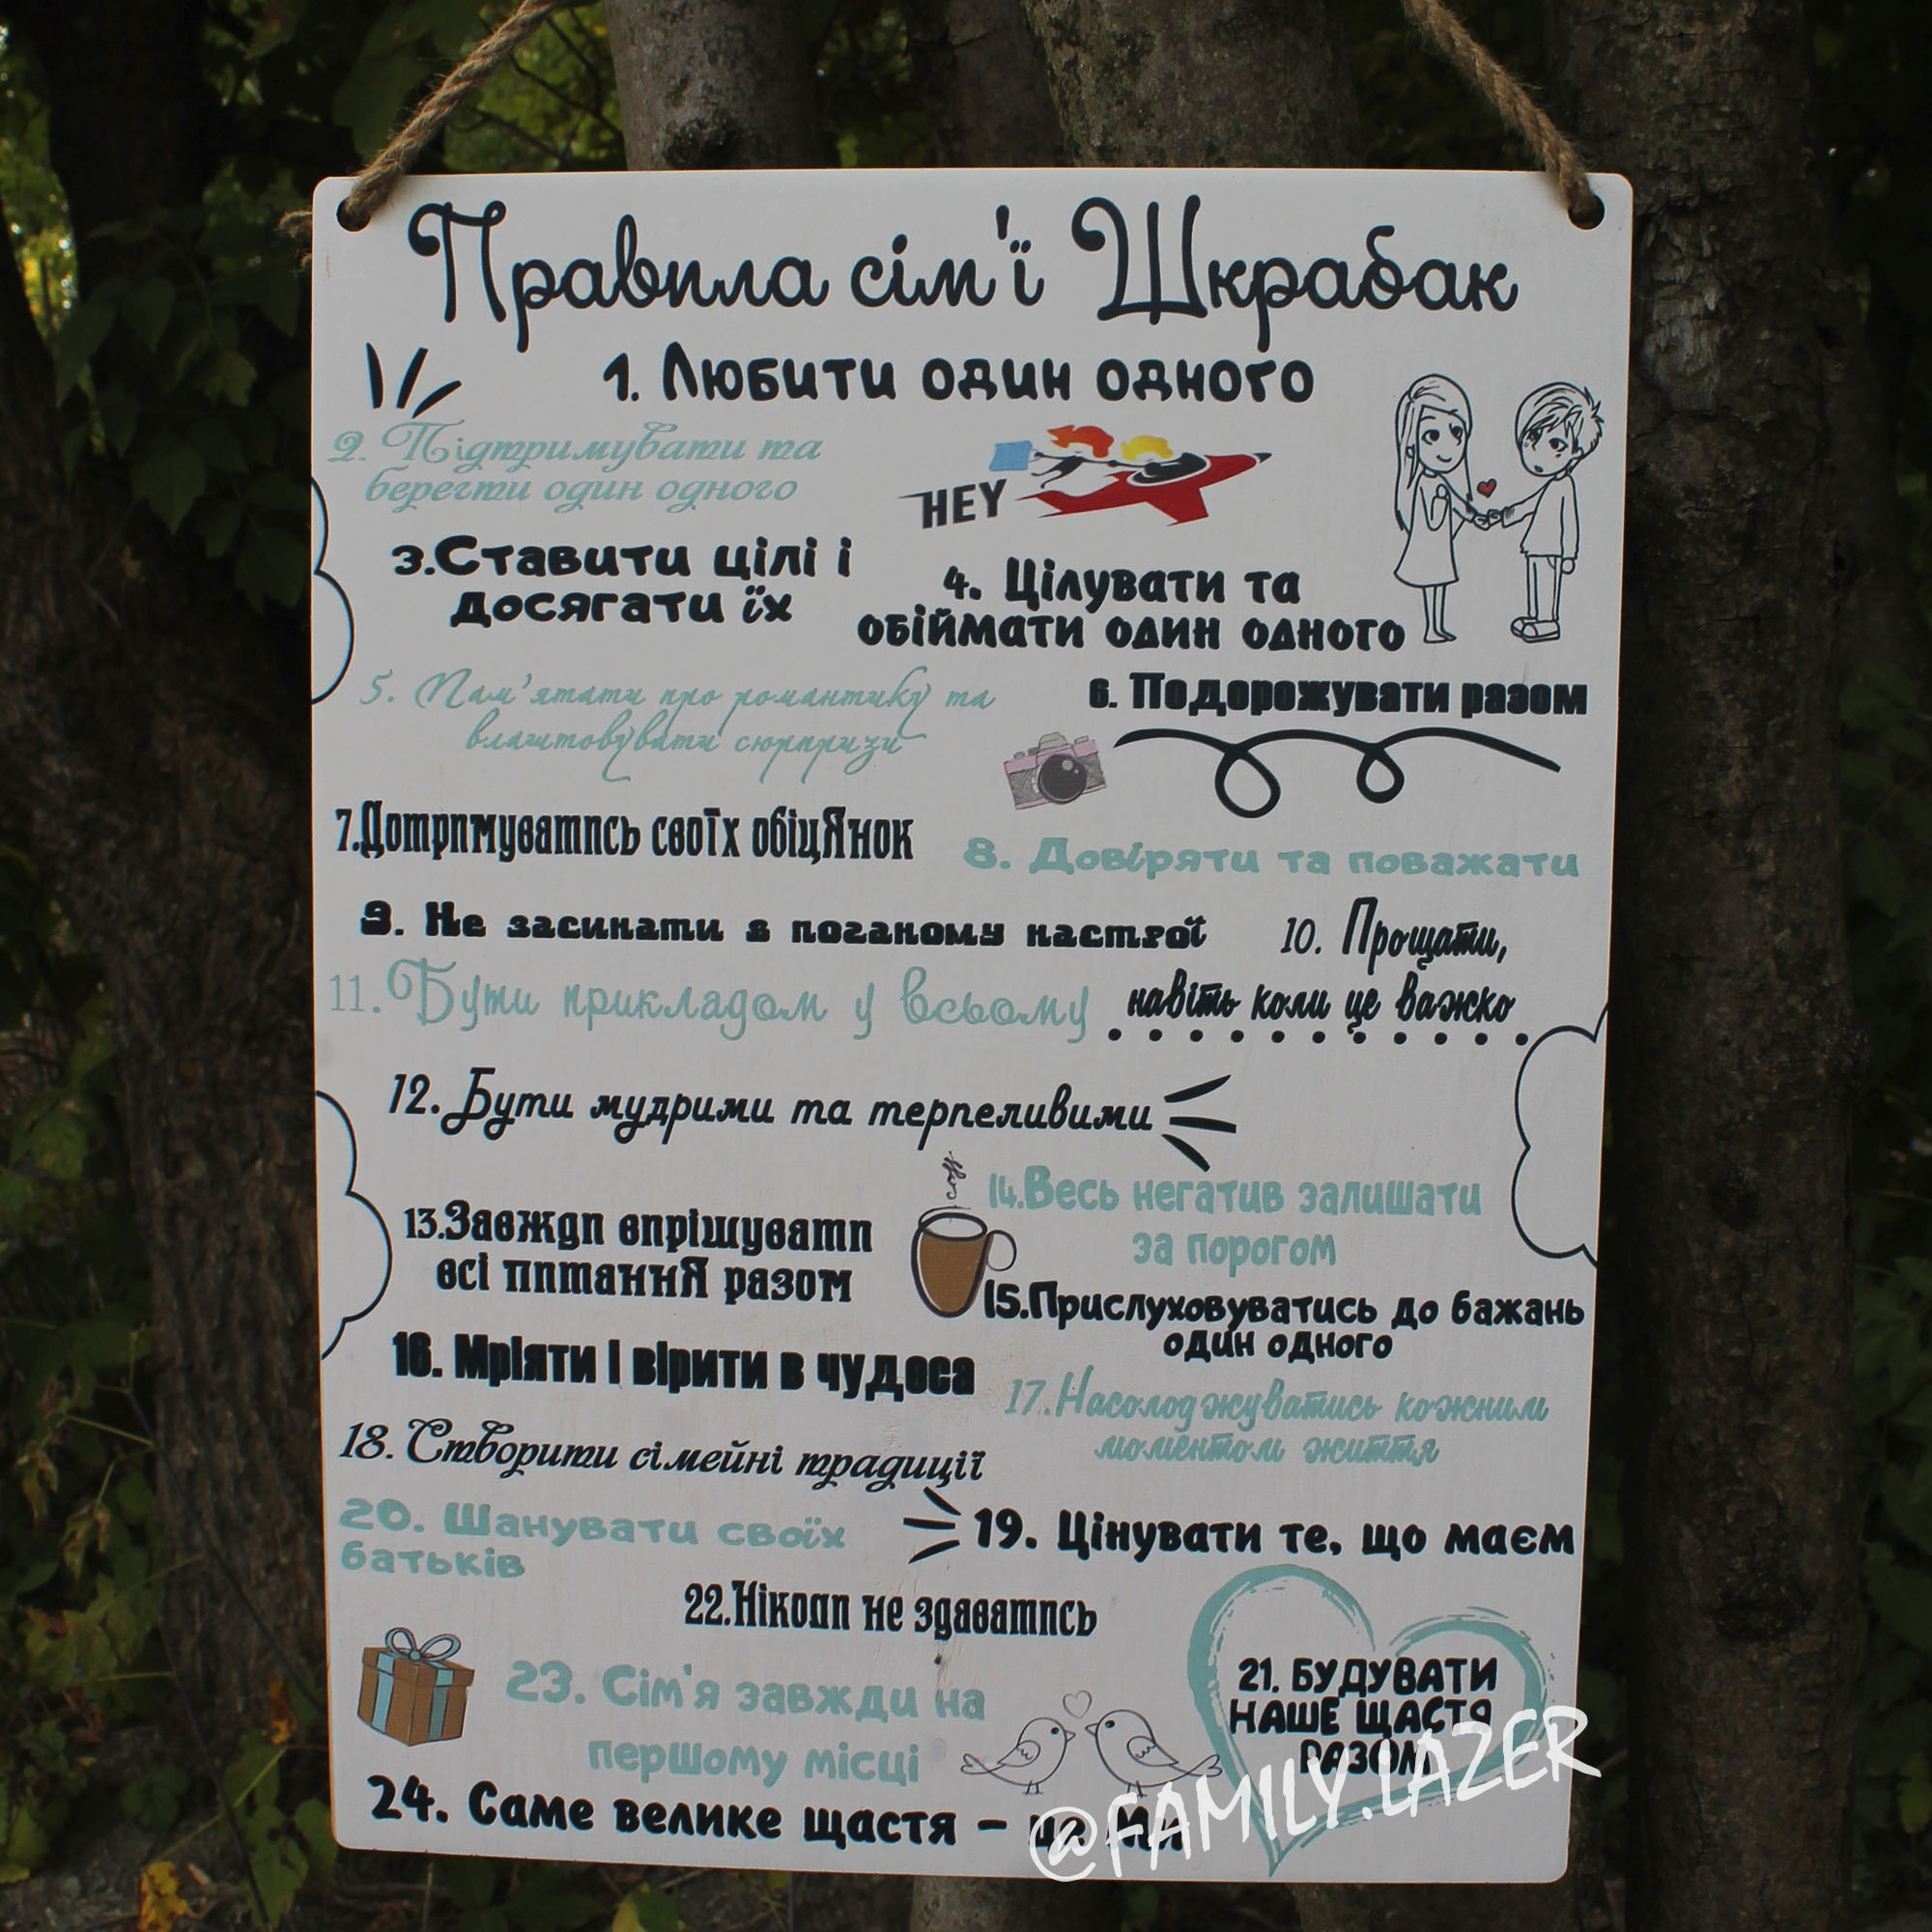 Правила сім'ї Шкрабак
1. Любити один одного
2. Підтримувати та
берегти один одного
HEY
3.Ставити цілі і
досягати їх
4. Цілувати та
обіймати один одного
5. Пам'ятати про романтику та
влаштовувати сюрпризи
6. Подорожувати разом
7.Дотримуватись своїх обіцЯнок
8. Довіряти та поважати
9. Не засинати в поганому настрої
10. Прощати,
навіть коли це важко
11. Бути прикладом у всьому
12. Бути мудрими та терпеливими
13.Завжди вирішувати
всі питаннЯ разом
coff
14.Весь негатив залишати
за порогом
15.Прислуховуватись до бажань
один одного
16. Мріяти і вірити в чудеса
17.Насолоджуватись кожним
моментом життя
18. Створити сімейні традиції
19. Цінувати те, що маєм
20. Шанувати своїх
батьків
21. БУДУВАТИ
НАШЕ ЩАСТЯ
РАЗОМ
22.Ніколи не здаватись
23. Сім'я завжди на
першому місці
24. Саме велике щастя - це Ми
@FAMILY.LAZER